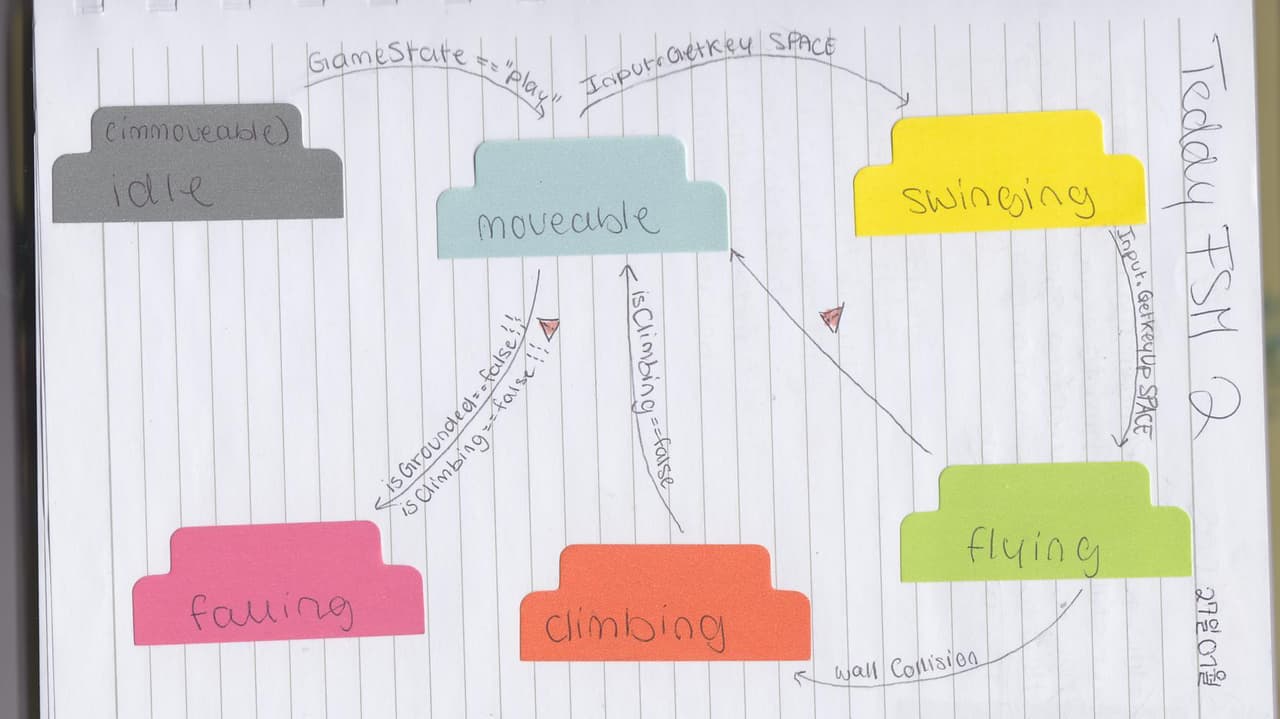 GameState == "play"
Input.GetKey SPACE
(immoveable)
idle
moveable
swinging
Input.GetKeyUp SPACE
isGrounded==false!!
isClimbing==false!!
isClimbing==false
falling
climbing
flying
wall Collision
Teddy FSM 2
27일07월